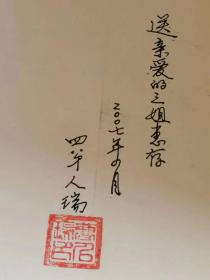 送亲爱的三姐惠存
二00七年 月
四弟人瑞